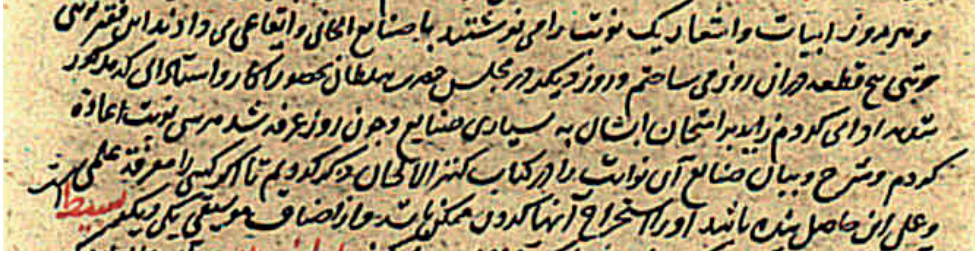 و هر روز ابیات و اشعار یک نوبت را می نوشتند با صنایع الحانی و ایقاعی می دادند این فقیر نوبتی
مع قطعه دران روز می ساختم و روز دیگر در مجلس حضرت سلطان بحضور اکابر و استادانی که مذکور
شدند ادا می کردم زاید بر امتحان ایشان به بسیاری صنایع و چون روز عرفه شد هر سی نوبت اعاده
کردم و شرح و بیان صنایع آن نوابت را در کتاب کنز الالحان ذکر کردیم تا اگر کسی را معرفة علمی
و عملی این حاصل شده باشد او را استخراج آنها کردن ممکن باشد و از اصناف موسیقی یکی دیگر بسیط است